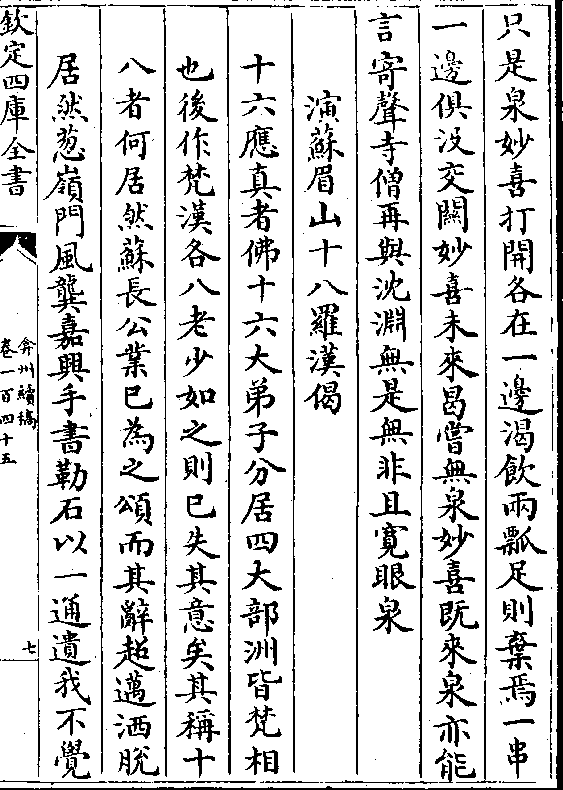 只是泉妙喜打開各在一邊渴飲兩瓢足則棄焉一串
一邊俱没交關妙喜未來曷嘗無泉妙喜既來泉亦能
言寄聲寺僧再與沈淵無是無非且寛眼泉
演蘇眉山十八羅漢偈
十六應真者佛十六大弟子分居四大部洲皆梵相
也後作梵漢各八老少如之則已失其意矣其稱十
八者何居然蘇長公業已為之頌而其辭超邁洒脫
居然葱嶺門風龔嘉興手書勒石以一通遺我不覺
欽定四庫全書
弇州續稿
卷一百四十五
七